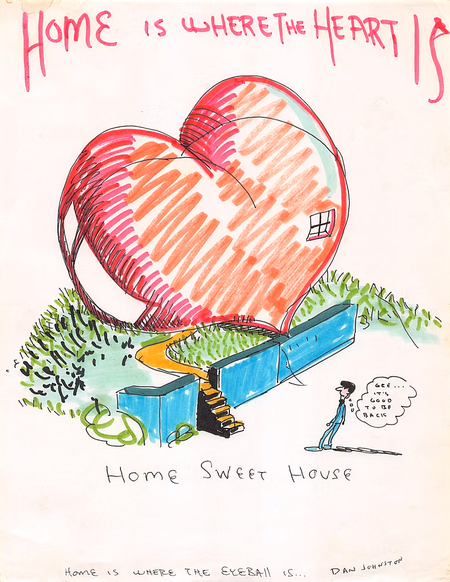 HOME IS WHERE THE HEART IS
GEE...
IT'S
GOOD
TO BE
BACK
HOME SWEET HOUSE
HOME IS WHERE THE EYEBALL IS... DAN JOHNSTON